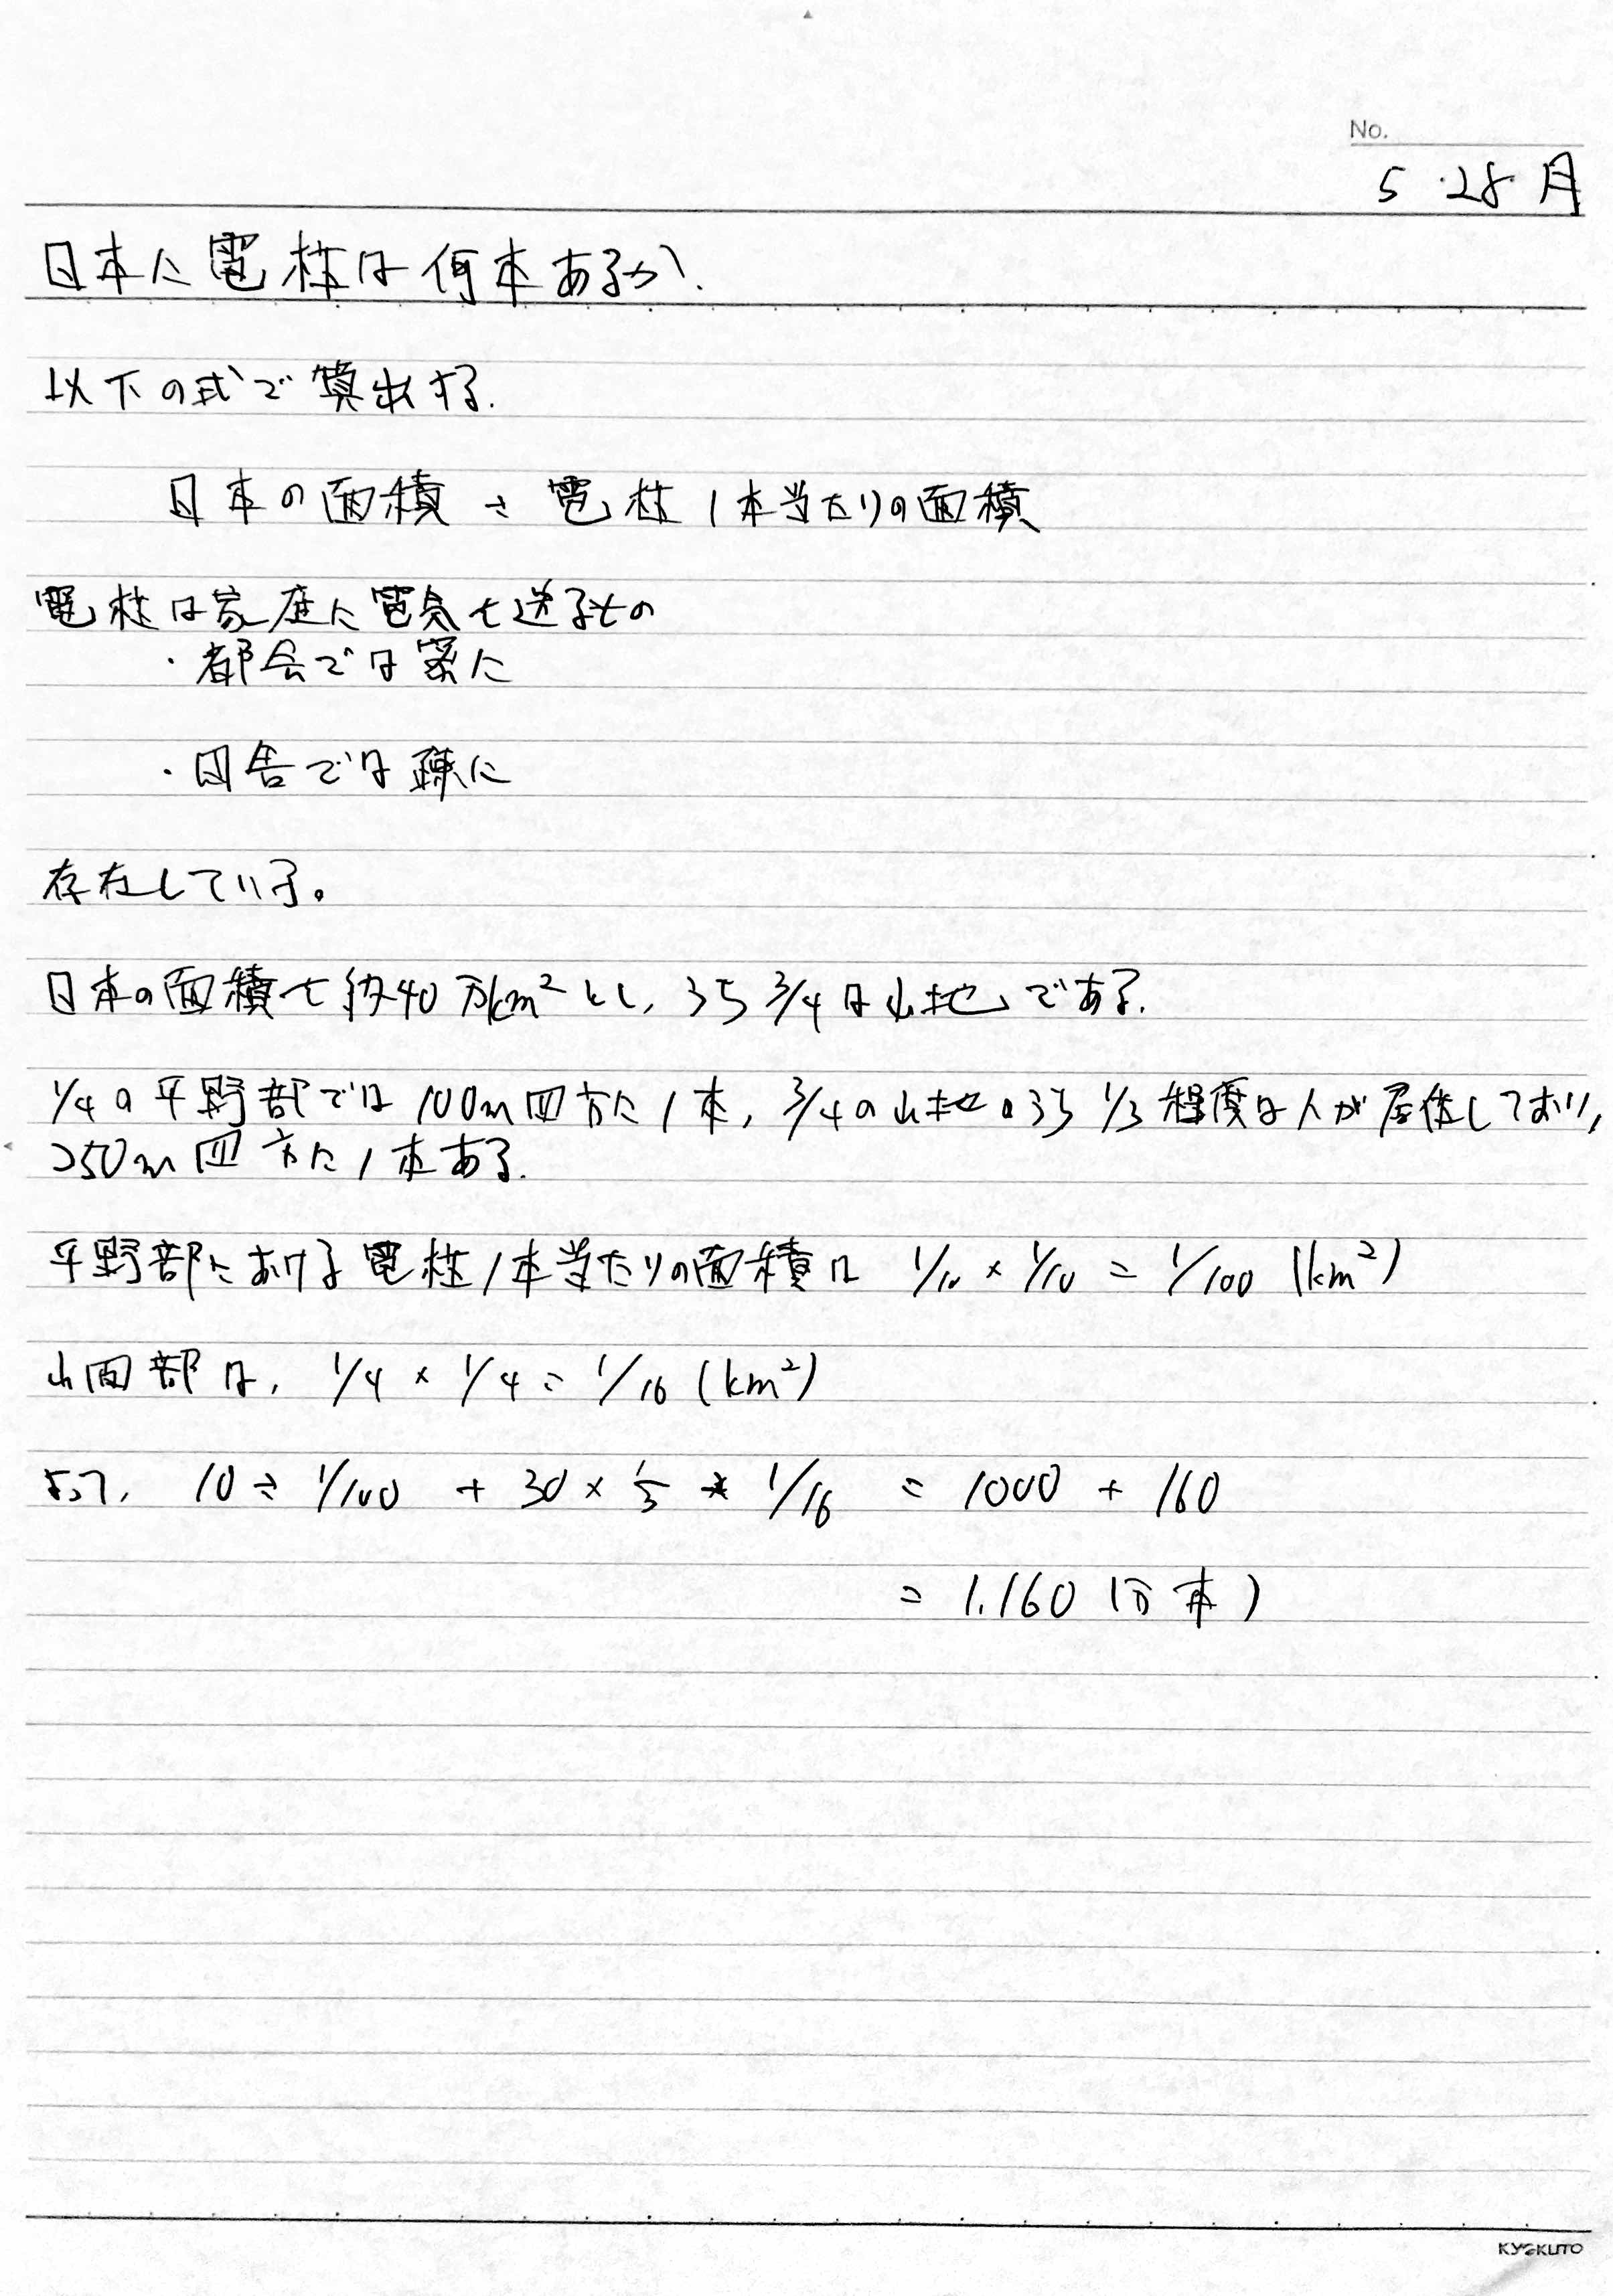 No.
5.28 月
日本に電柱は何本あるか.
以下の式で算出する.
日本の面積 ÷ 電柱1本当たりの面積
電柱は家庭に電気を送るもの
・都会では密に
・田舎では疎に
存在している。
日本の面積を約40万km²とし, うち3/4は山地である.
1/4の平野部では100m四方に1本, 3/4の山地のうち1/3程度は人が居住しており,
250m四方に1本ある.
平野部における電柱1本当たりの面積は 1/10 × 1/10 = 1/100 (km²)
山間部は, 1/4 × 1/4 = 1/16 (km²)
よって, 10 ÷ 1/100 + 30 × 1/3 ÷ 1/16 = 1000 + 160
= 1,160 (万本)
KYOKUTO